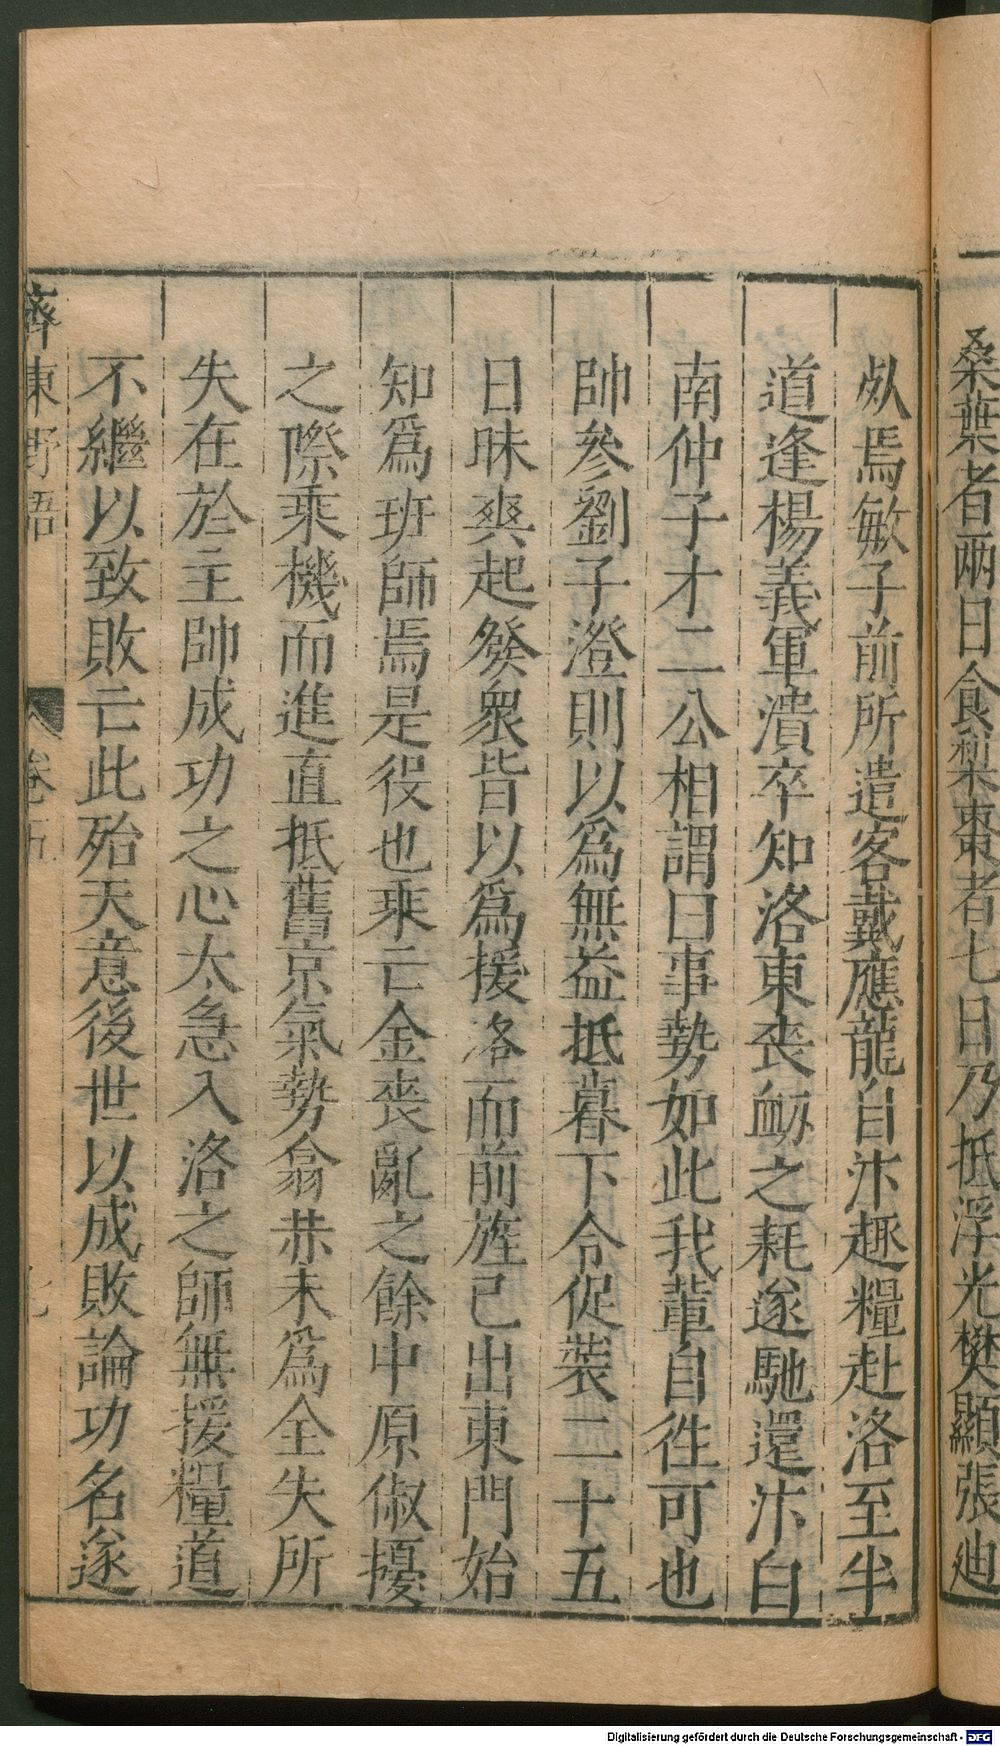 桑葉者兩日食梨棗者七日乃抵浮光樊顯張迪
歿焉敏子前所遣客戴應龍自汴趣糧赴洛至半
道逢楊義軍潰卒知洛東喪衂之耗遂馳還汴白
南仲子才二公相謂曰事勢如此我輩自徃可也
帥參劉子澄則以為無益抵暮下令促裝二十五
日昧爽起發衆皆以為援洛而前旌已出東門始
知爲班師焉是役也乘亡金喪亂之餘中原俶擾
之際乘機而進直抵舊京氣勢翕赫未爲全失所
失在於主帥成功之心太急入洛之師無援糧道
不繼以致敗亡此殆天意後世以成敗論功名遂
齊東野語 卷五
Digitalisierung gefördert durch die Deutsche Forschungsgemeinschaft - DFG